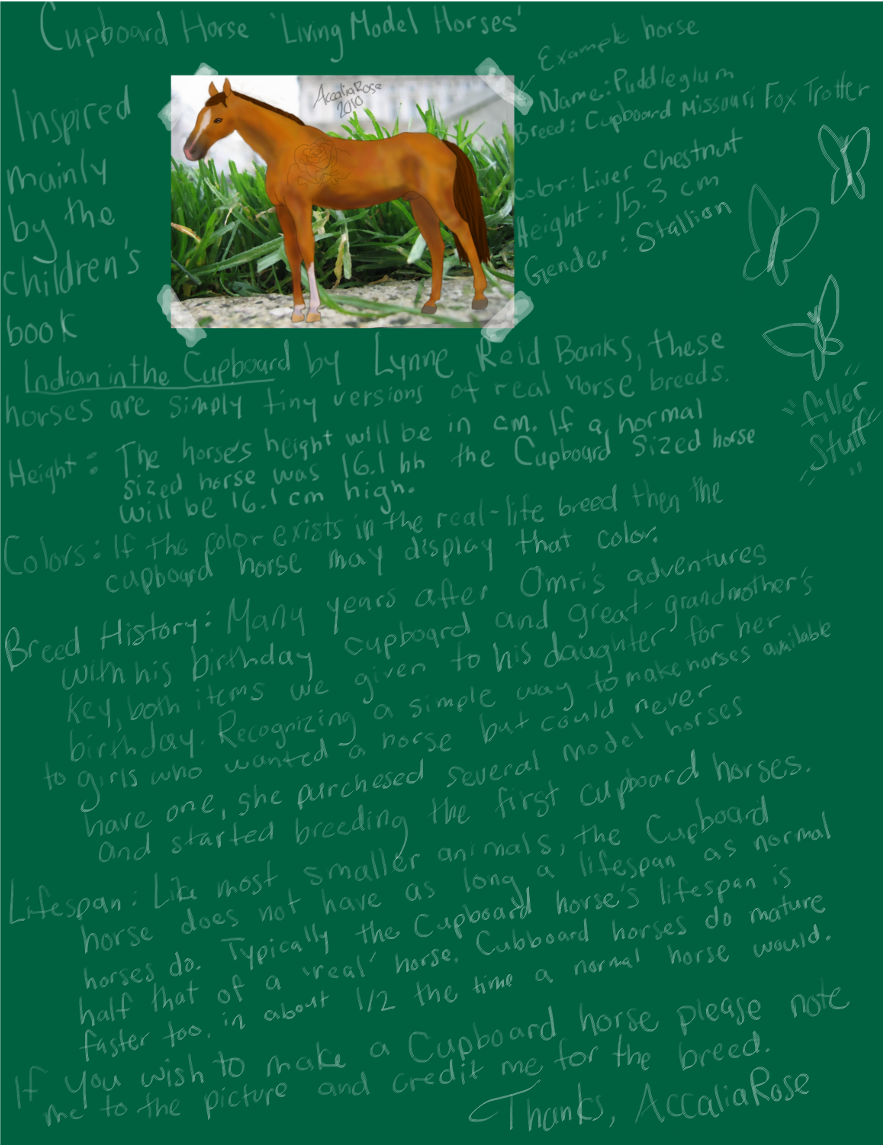 Cupboard Horse 'Living Model Horses'
AccaliaRose
2010
Example horse
Name: Puddleglum
Breed: Cupboard Missouri Fox Trotter
Color: Liver Chestnut
Height: 15.3 cm
Gender: Stallion
Inspired
mainly
by the
children's
book
Indian in the Cupboard by Lynne Reid Banks, these
horses are simply tiny versions of real horse breeds.
"filler
Stuff"
Height: The horse's height will be in cm. If a normal
sized horse was 16.1 hh the Cupboard Sized horse
will be 16.1 cm high.
Colors: If the color exists in the real-life breed then the
cupboard horse may display that color.
Breed History: Many years after Omri's adventures
with his birthday cupboard and great-grandmother's
key, both items we given to his daughter for her
birthday. Recognizing a simple way to make horses available
to girls who wanted a horse but could never
have one, she purchesed several model horses
and started breeding the first cupboard horses.
Lifespan: Like most smaller animals, the Cupboard
horse does not have as long a lifespan as normal
horses do. Typically the Cupboard horse's lifespan is
half that of a 'real' horse. Cubboard horses do mature
faster too, in about 1/2 the time a normal horse would.
If you wish to make a Cupboard horse please note
me to the picture and credit me for the breed.
Thanks, AccaliaRose